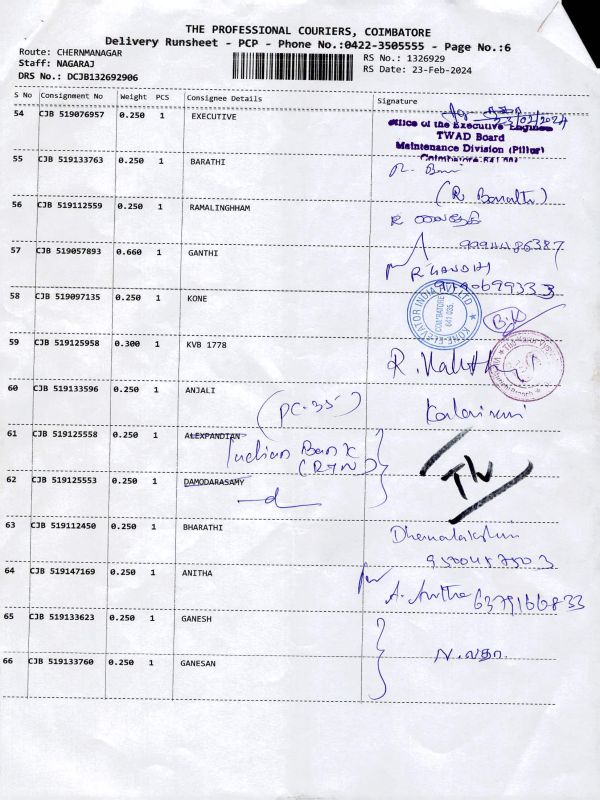 THE PROFESSIONAL COURIERS, COIMBATORE
Delivery Runsheet - PCP - Phone No.:0422-3505555 - Page No.:6
Route: CHERNMANAGAR
Staff: NAGARAJ
DRS No.: DCJB132692906
RS No.: 1326929
RS Date: 23-Feb-2024
S No Consignment No Weight PCS Consignee Details Signature
54 CJB 519076957 0.250 1 EXECUTIVE
23/02/2024
Office of the Executive Engineer
TWAD Board
Maintenance Division (Pillur)
Coimbatore-641 001
55 CJB 519133763 0.250 1 BARATHI
56 CJB 519112559 0.250 1 RAMALINGHHAM
57 CJB 519057893 0.660 1 GANTHI
R GANDHI
58 CJB 519097135 0.250 1 KONE
KONE ELEVATOR INDIA PVT LTD
COIMBATORE
641 035
B.K
59 CJB 519125958 0.300 1 KVB 1778
60 CJB 519133596 0.250 1 ANJALI
(PC-35)
61 CJB 519125558 0.250 1 ALEXPANDIAN
Indian Bank
(RTN)
62 CJB 519125553 0.250 1 DAMODARASAMY
63 CJB 519112450 0.250 1 BHARATHI
64 CJB 519147169 0.250 1 ANITHA
A. Anitha 6379166833
65 CJB 519133623 0.250 1 GANESH
66 CJB 519133760 0.250 1 GANESAN